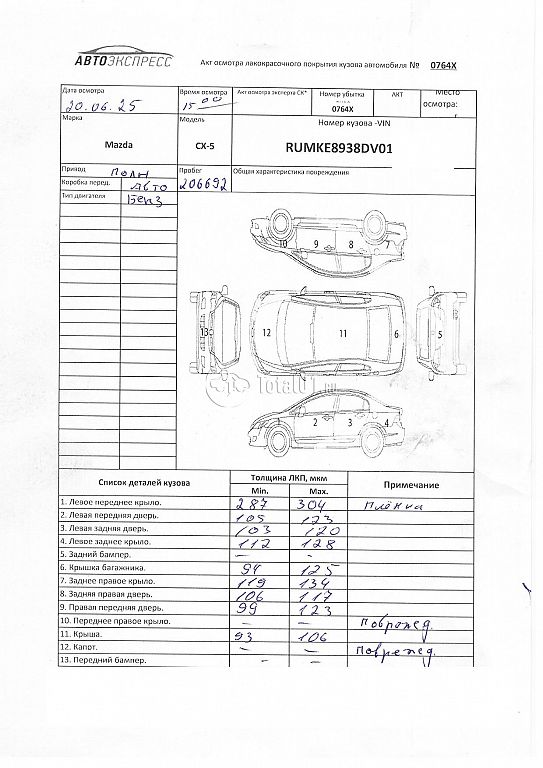 АВТОЭКСПРЕСС
Акт осмотра лакокрасочного покрытия кузова автомобиля № 0764X
Дата осмотра
20.06.25
Время осмотра
15 00
Акт осмотра эксперта СК"
Номер убытка
0764X
АКТ
Место
осмотра:
Марка
Mazda
Модель
CX-5
Номер кузова -VIN
RUMKE8938DV01
Привод Полн
Пробег
206692
Общая характеристика повреждения
Коробка перед. Авто
Тип двигателя Бенз
10 9 8 7
13 12 11 6 5
2 3 4
Total01.ru
Список деталей кузова
Толщина ЛКП, мкм
Min. Max.
Примечание
1. Левое переднее крыло. 287 304 Плёнка
2. Левая передняя дверь. 105 123
3. Левая задняя дверь. 103 120
4. Левое заднее крыло. 112 128
5. Задний бампер. – –
6. Крышка багажника. 94 125
7. Заднее правое крыло. 119 134
8. Задняя правая дверь. 106 117
9. Правая передняя дверь. 99 123
10. Переднее правое крыло. – – Поврежд.
11. Крыша. 93 106
12. Капот. – – Поврежд.
13. Передний бампер. – –